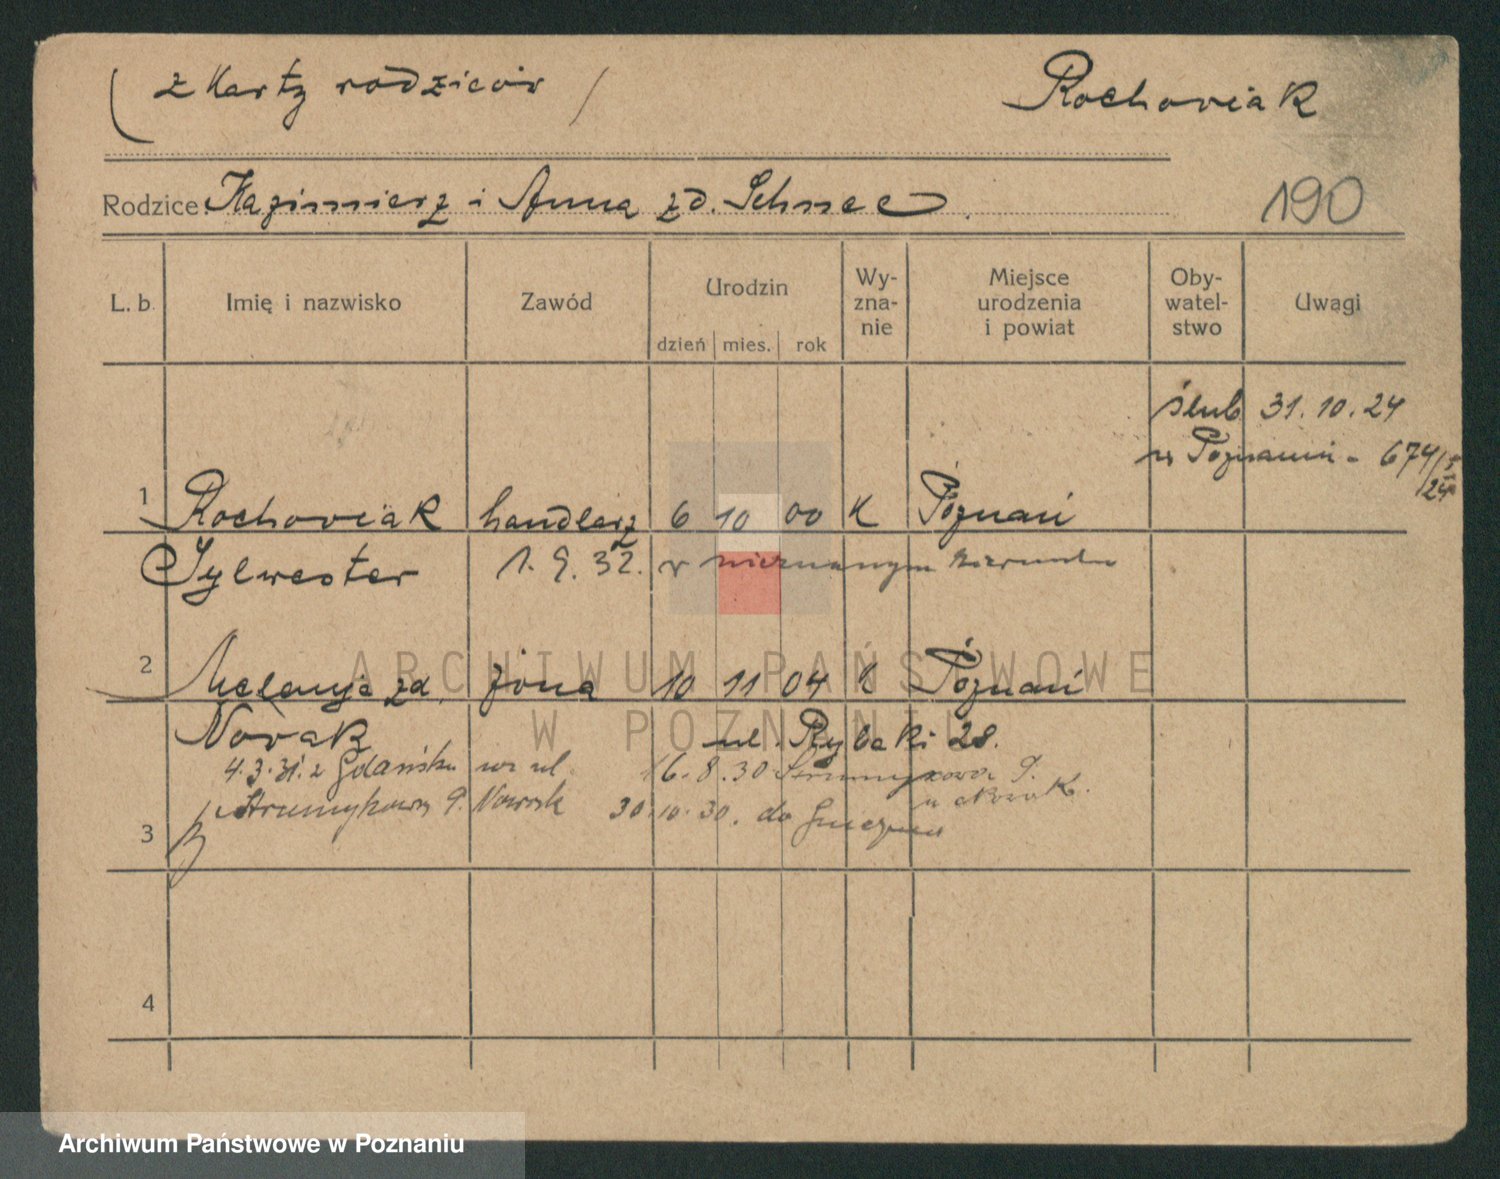 (z Karty rodziców)
Rochoviak
Rodzice: Kazimierz i Anna zd. Schnee.
190
L. b. Imię i nazwisko Zawód Urodzin Wy-zna-nie Miejsce urodzenia i powiat Oby-watel-stwo Uwagi
dzień mies. rok
ślub 31.10.24
w Poznaniu - 674/
24
1 Rochoviak handlarz 6 10 00 K Poznań
Sylwester 1.9.32. w nieznanym kierunku
2 Melanja zd. żona 10 11 04 K Poznań
Novak ul. Rybaki 28.
4.3.31. z Gdańska na ul. 16.8.30 Strumykowa 9.
Strumykowa 9. Nowak 30.10.30. do Gniezna
u Nowak.
3
4
ARCHIWUM PAŃSTWOWE
W POZNANIU
Archiwum Państwowe w Poznaniu